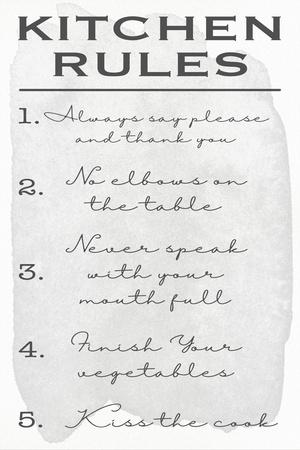 KITCHEN
RULES
1. Always say please
and thank you
2. No elbows on
the table
3. Never speak
with your
mouth full
4. Finish Your
vegetables
5. Kiss the cook